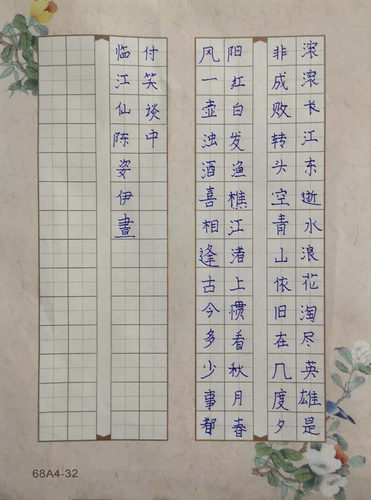 滚滚长江东逝水浪花淘尽英雄是
非成败转头空青山依旧在几度夕
阳红白发渔樵江渚上惯看秋月春
风一壶浊酒喜相逢古今多少事都
付笑谈中
临江仙陈姿伊晝
68A4-32